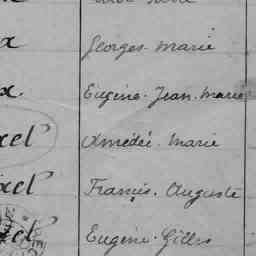 x Georges. Marie
x. Eugène. Jean. Marie
xel Amédée. Marie
xel Francis. Auguste
xel Eugène. Gilles